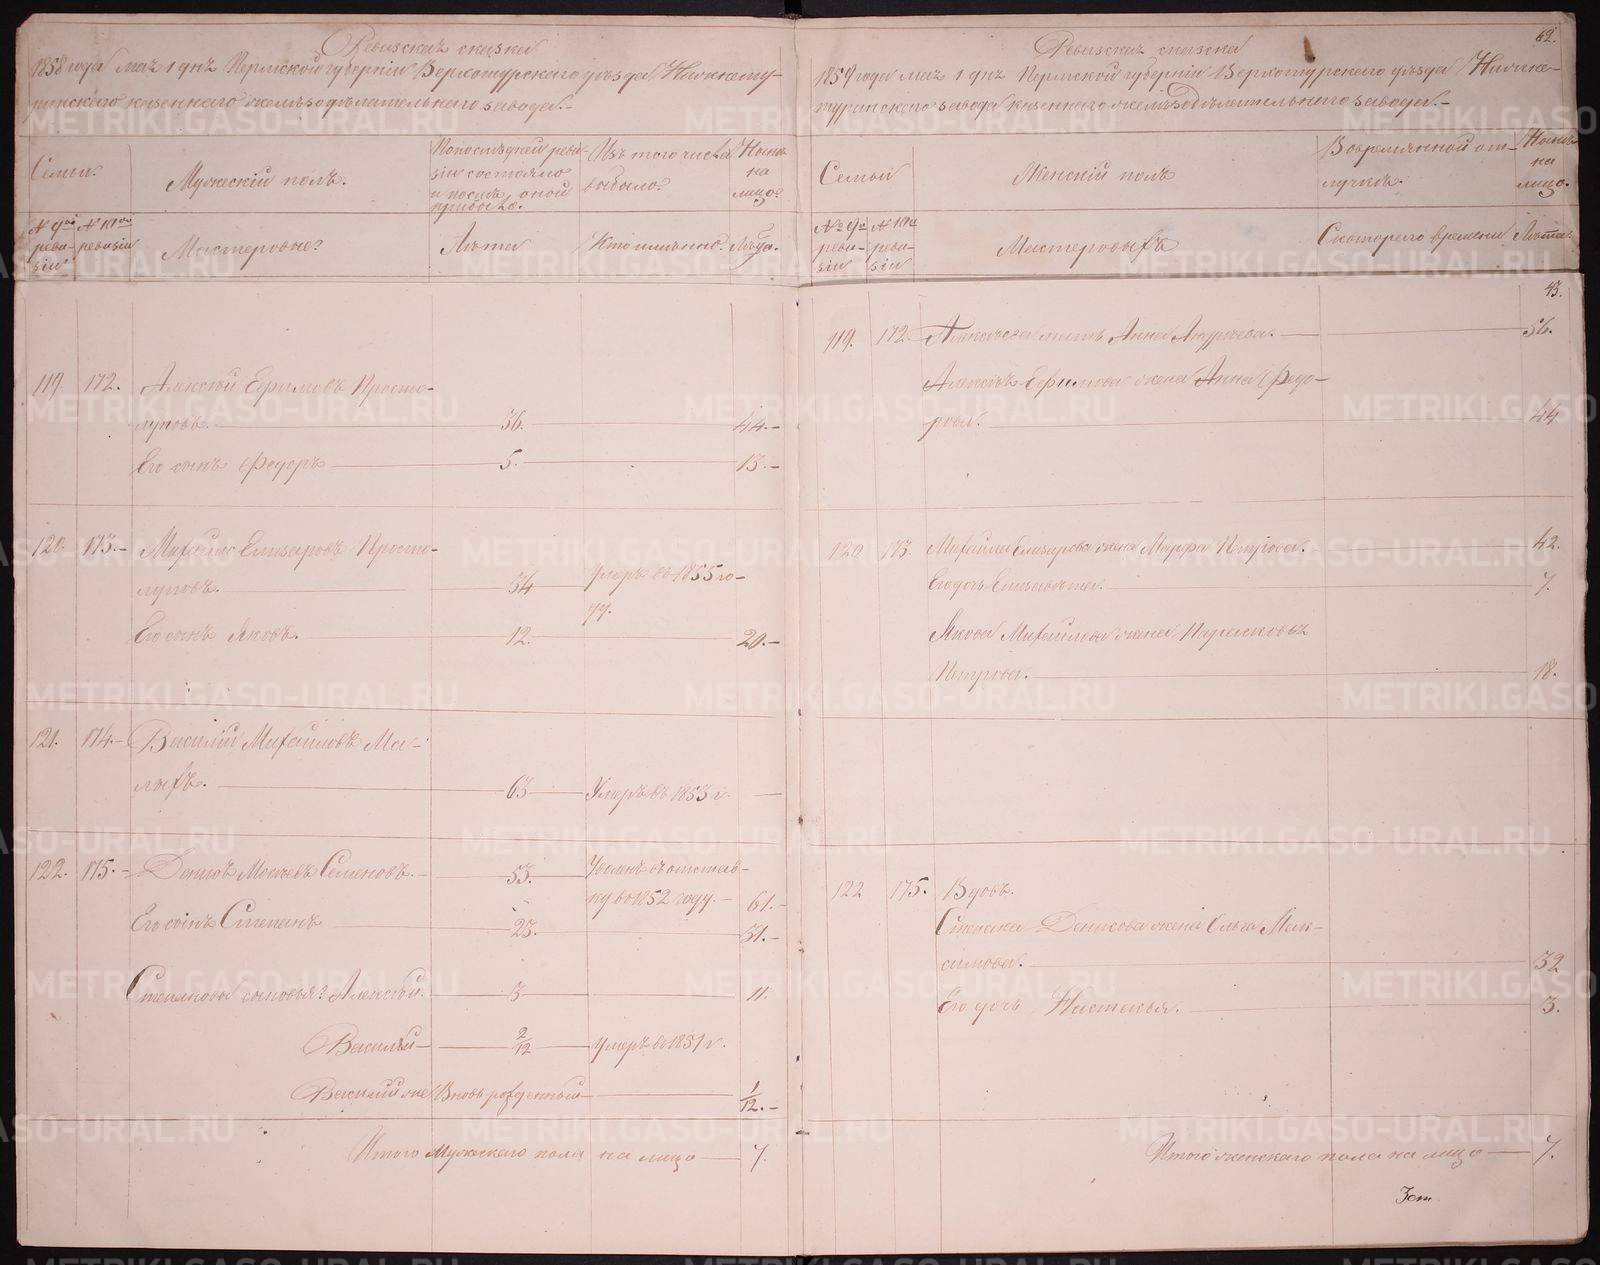 Ревизская сказка
1858 года мая 1 дня Пермской губернiи Верхотурскаго уѣзда Нижнету-
ринскаго казеннаго желѣзодѣлательнаго завода.-
Семьи.
Мужескiй полъ.
По послѣдней реви-
зiи состояло
и послѣ оной
прибыло.
Изъ того числа
выбыло.
Нынѣ
на
лицо.
№ 9ой
реви-
зiи
№ 10ой
ревизiи
Мастеровые:
Лѣта
Кто именно.
Лѣта.
119. 172. Алексѣй Ефимовъ Просто-
луповъ. 36. 44.-
Его сынъ Федоръ 5. 13.-
120. 173.- Михайло Елизаровъ Просто-
луповъ. 34 Умеръ въ 1855 го-
ду.
Его сынъ Яковъ. 12. 20.-
121. 174.- Василiй Михайловъ Ма-
лыхъ. 63. Умеръ въ 1853 г.
122. 175.- Денисъ Моисѣевъ Семеновъ. 53. Уволенъ въ отстав-
ку въ 1852 году.- 61.-
Его сынъ Степанъ 23. 31.-
Степановы сыновья: Алексѣй. 3 11.
Василiй 2/12 Умеръ въ 1851 г.
Василiй же Вновь рожденный 1/12.-
Итого Мужескаго пола на лицо 7.
62.
Ревизская сказка
1858 года мая 1 дня Пермской губернiи Верхотурскаго уѣзда Нижне-
туринскаго завода казеннаго желѣзодѣлательнаго завода.-
Семьи
Женскiй полъ
Во временной от-
лучкѣ.
Нынѣ
на
лицо.
№ 9й
реви-
зiи
№ 10й
реви-
зiи
Мастеровыхъ
Съ котораго времени
Лѣта.
43.
119. 172. Алексѣева мать Анна Андреева. 56.
Алексѣя Ефимова жена Анна Федо-
рова. 44
120 173. Михайла Елизарова жена Марфа Петрова. 42.
Его дочь Елизавета. 7.
Якова Михайлова жена Парасковья
Петрова. 18.
122 175. Вдовъ.
Степана Денисова жена Ольга Мак-
симова. 32
Его дочь Настасья. 3.
Итого женскаго пола на лицо 7.
METRIKI.GASO-URAL.RU